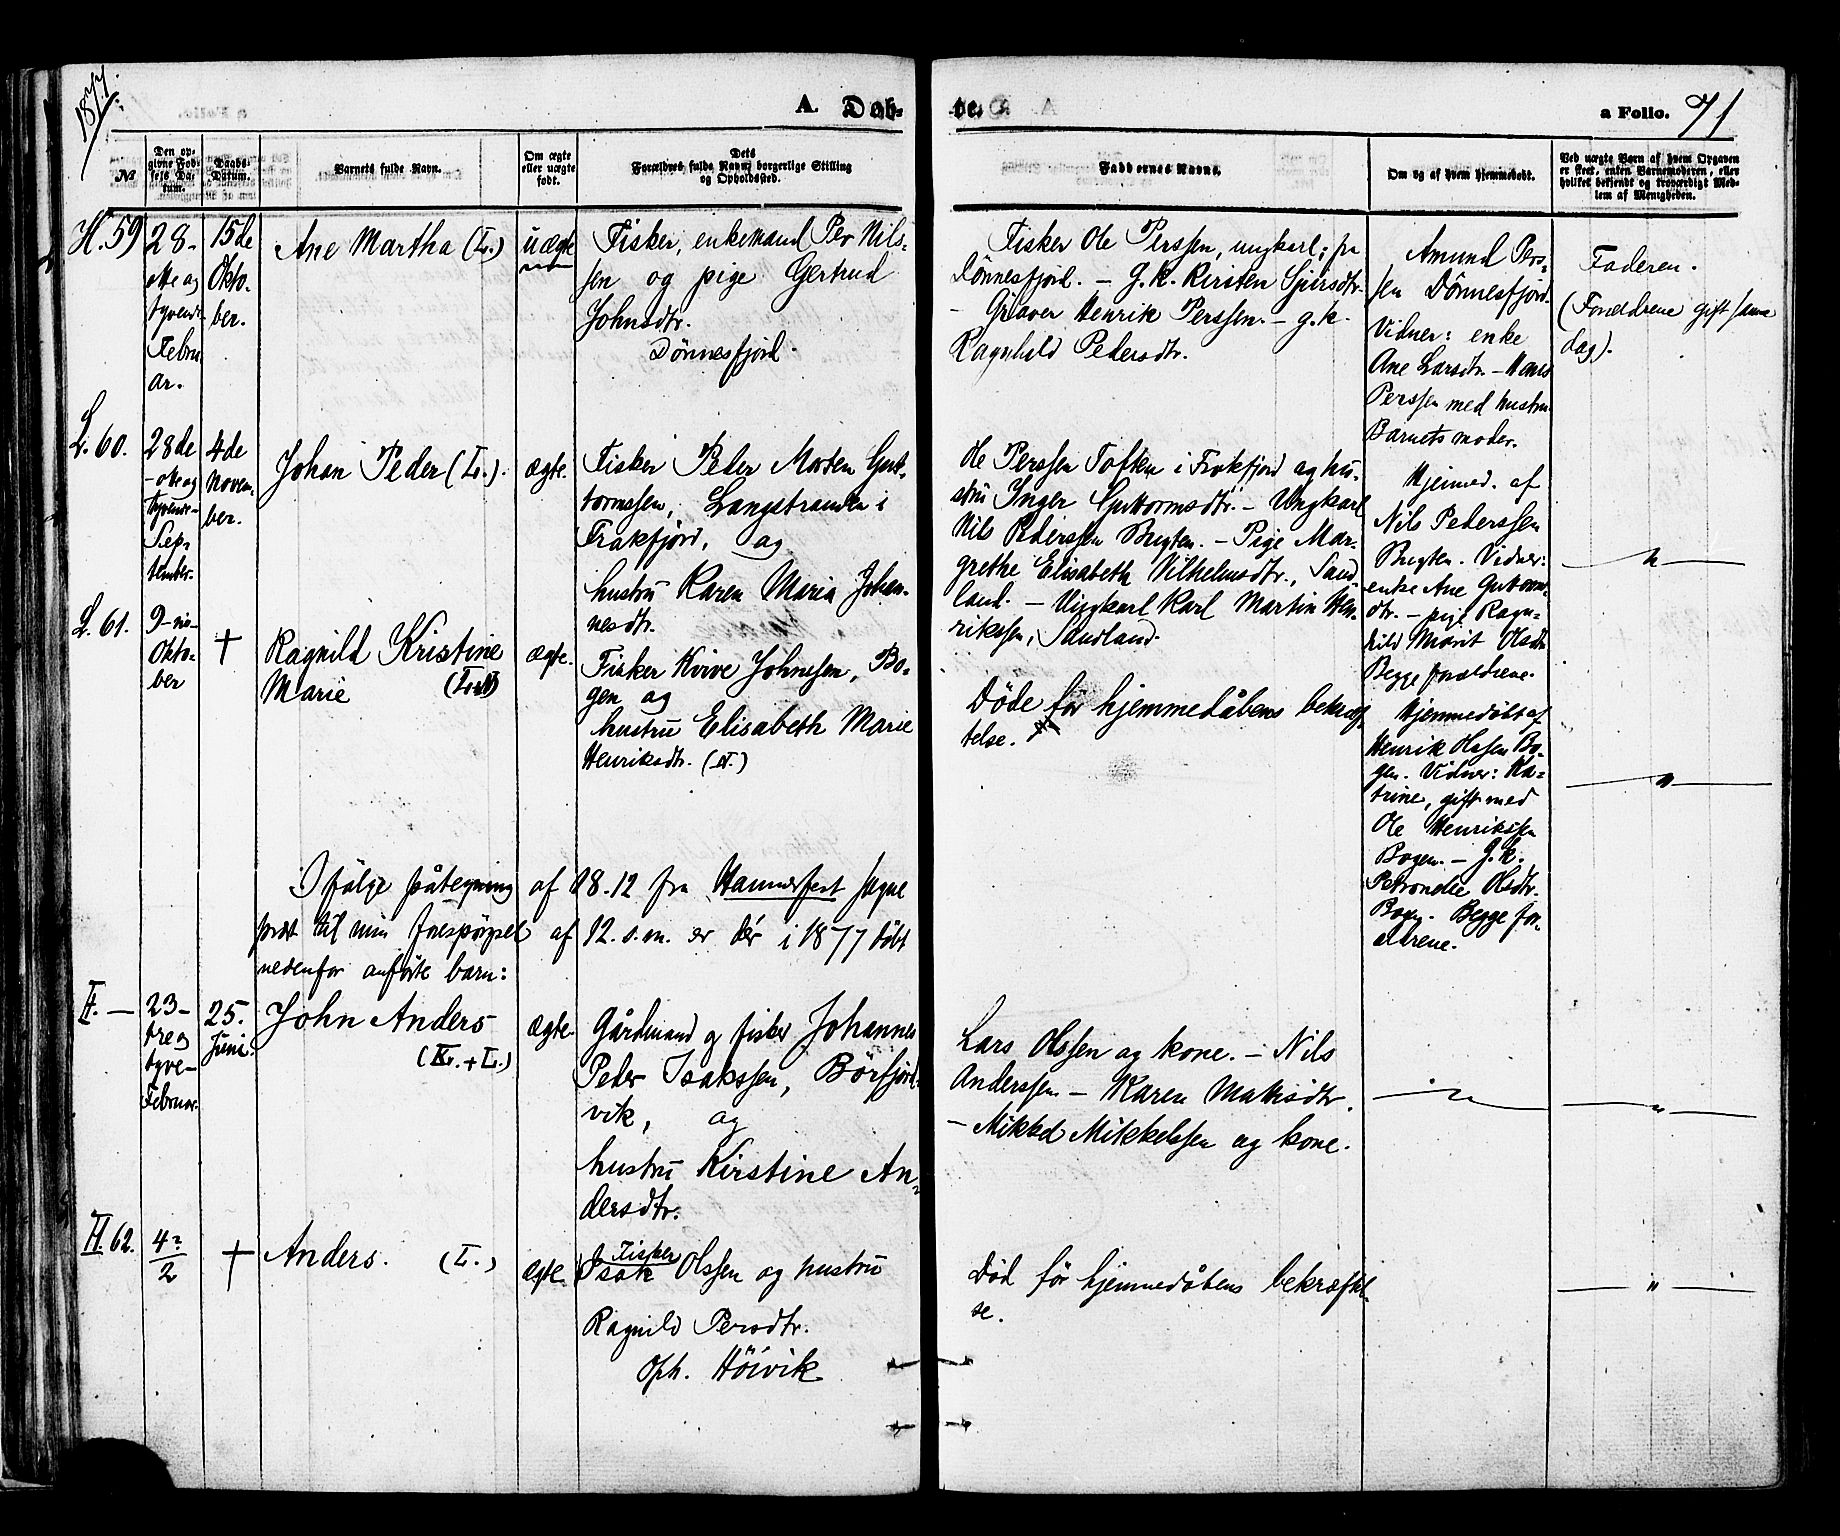 1877.
A. Døb-
te.
a Folio. 71
№
Den op-
givne Fød-
sels Da-
tum.
Daabs-
Datum.
Barnets fulde Navn.
Om ægte
eller uægte
født.
Dets
Forældres fulde Navn, borgerlige Stilling
og Opholdssted.
Faddernes Navne.
Om og af hvem hjemmedøbt.
Ved uægte Barn af hvem Opgaven
er skeet, enten Barnemoderen, eller
hvilket bekjendt og troværdigt Med-
lem af Menigheden.
H. 59
28-
otte og
tyvende
Febru
ar.
15de
Okto-
ber.
Ane Martha (L.)
uægte
Fisker, enkemand Per Nils-
sen og pige Gertrud
Johnsdtr.
Dönnesfjord.
Fisker Ole Perssen, ungkarl; fra
Dönnesfjord. – G. k. Kirsten Sjursdtr.
– Graver Henrik Perssen. – g. k.
Ragnhild Pedersdtr.
Amund Pers-
sen Dönnesfjord.
Vidner: enke
Ane Larsdtr. – Hans
Perssen med hustru.
Barnets moder.
Faderen.
(Forældrene gift samme
dag).
L. 60.
28de
- otte og
tyvende-
Sep-
tember.
4de
Novem-
ber.
Johan Peder (L.).
ægte.
Fisker Peder Morten Gut-
tormssen, Langstranden i
Frakfjord, og
hustru Karen Maria Johan-
nesdtr.
Ole Perssen Toften i Frakfjord og hu-
stru Inger Guttormsdtr. – Ungkarl
Nils Pederssen Bugten. – Pige Mar-
grethe Elisabeth Vilhelmsdtr., Sand-
land. – Ungkarl Karl Martin Hen-
rikssen, Sandland.
Hjemmed. af
Nils Pederssen
Bugten. Vidner:
enke Ane Guttorms-
dtr. – pige Ragn-
hild Marit Olsdtr.
Begge forældrene.
"
L. 61.
9-ni-
Okto-
ber
†
Ragnild Kristine
Marie
ægte.
Fisker Kvive Johnssen, Bo-
gen og
hustru Elisabeth Marie
Henriksdtr. (N.)
Döde før hjemmedåbens bekræf-
telse.
Hjemmedöbt af
Henrik Olssen Bo-
gen. Vidner: Ka-
trine, gift med
Ole Henrikssen
Bogen. – G. k.
Petronelle Olsdtr.
Bogen. Begge for-
ældrene.
"
I følge påtegning af 18.12 fra Hammerfest sogne
præst til min forespörgsel af 12. s. m. er dér i 1877 döbt
nedenfor anförte barn:
H. –
23-
tre og
tyve-
Februar.
25.
Juni.
John Anders
(K. + L.)
ægte.
Gårdmand og fisker Johannes
Peder Isakssen, Börfjord-
vik, og
hustru Kirstine An-
dersdtr.
Lars Olssen og kone. – Nils
Anderssen – Karen Mathisdtr.
– Mikkel Mikkelssen og kone.
"
"
H. 62.
4?
2
†
Anders. (L.)
ægte.
Fisker
Isak Olssen og hustru
Ragnild Persdtr.
Oph. Höivik
Död för hjemmedåbens bekræftel-
se.
"